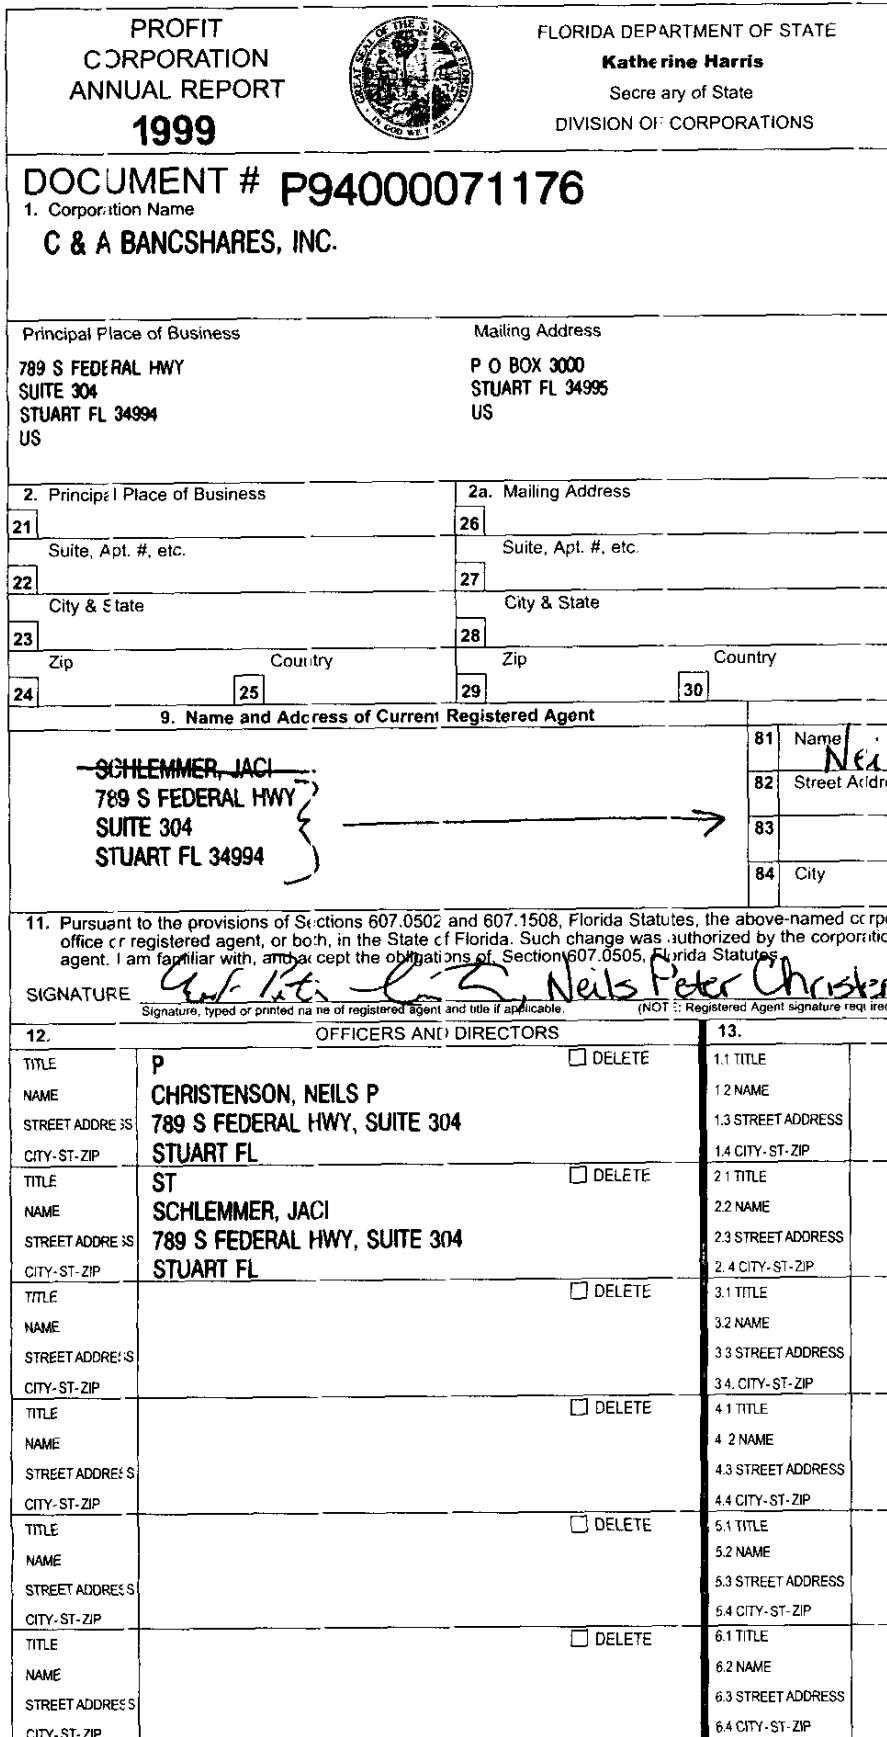 PROFIT
CORPORATION
ANNUAL REPORT
1999
GREAT SEAL OF THE STATE OF FLORIDA
IN GOD WE TRUST
FLORIDA DEPARTMENT OF STATE
Katherine Harris
Secre ary of State
DIVISION OF CORPORATIONS
DOCUMENT # P94000071176
1. Corporation Name
C & A BANCSHARES, INC.
Principal Place of Business
789 S FEDERAL HWY
SUITE 304
STUART FL 34994
US
Mailing Address
P O BOX 3000
STUART FL 34995
US
2. Principal Place of Business
2a. Mailing Address
21
26
Suite, Apt. #, etc.
Suite, Apt. #, etc.
22
27
City & State
City & State
23
28
Zip
Country
Zip
Country
24
25
29
30
9. Name and Address of Current Registered Agent
SCHLEMMER, JACI
789 S FEDERAL HWY
SUITE 304
STUART FL 34994
81 Name
Nei
82 Street Addre
83
84 City
11. Pursuant to the provisions of Sections 607.0502 and 607.1508, Florida Statutes, the above-named corpo
office or registered agent, or both, in the State of Florida. Such change was authorized by the corporatio
agent. I am familiar with, and accept the obligations of, Section 607.0505, Florida Statutes.
SIGNATURE
Neils Peter Christen
Signature, typed or printed name of registered agent and title if applicable.
(NOTE: Registered Agent signature required
12.
OFFICERS AND DIRECTORS
13.
TITLE P DELETE
NAME CHRISTENSON, NEILS P
STREET ADDRESS 789 S FEDERAL HWY, SUITE 304
CITY-ST-ZIP STUART FL
1.1 TITLE
1.2 NAME
1.3 STREET ADDRESS
1.4 CITY-ST-ZIP
TITLE ST DELETE
NAME SCHLEMMER, JACI
STREET ADDRESS 789 S FEDERAL HWY, SUITE 304
CITY-ST-ZIP STUART FL
2.1 TITLE
2.2 NAME
2.3 STREET ADDRESS
2.4 CITY-ST-ZIP
TITLE DELETE
NAME
STREET ADDRESS
CITY-ST-ZIP
3.1 TITLE
3.2 NAME
3.3 STREET ADDRESS
3.4. CITY-ST-ZIP
TITLE DELETE
NAME
STREET ADDRESS
CITY-ST-ZIP
4.1 TITLE
4.2 NAME
4.3 STREET ADDRESS
4.4 CITY-ST-ZIP
TITLE DELETE
NAME
STREET ADDRESS
CITY-ST-ZIP
5.1 TITLE
5.2 NAME
5.3 STREET ADDRESS
5.4 CITY-ST-ZIP
TITLE DELETE
NAME
STREET ADDRESS
CITY-ST-ZIP
6.1 TITLE
6.2 NAME
6.3 STREET ADDRESS
6.4 CITY-ST-ZIP